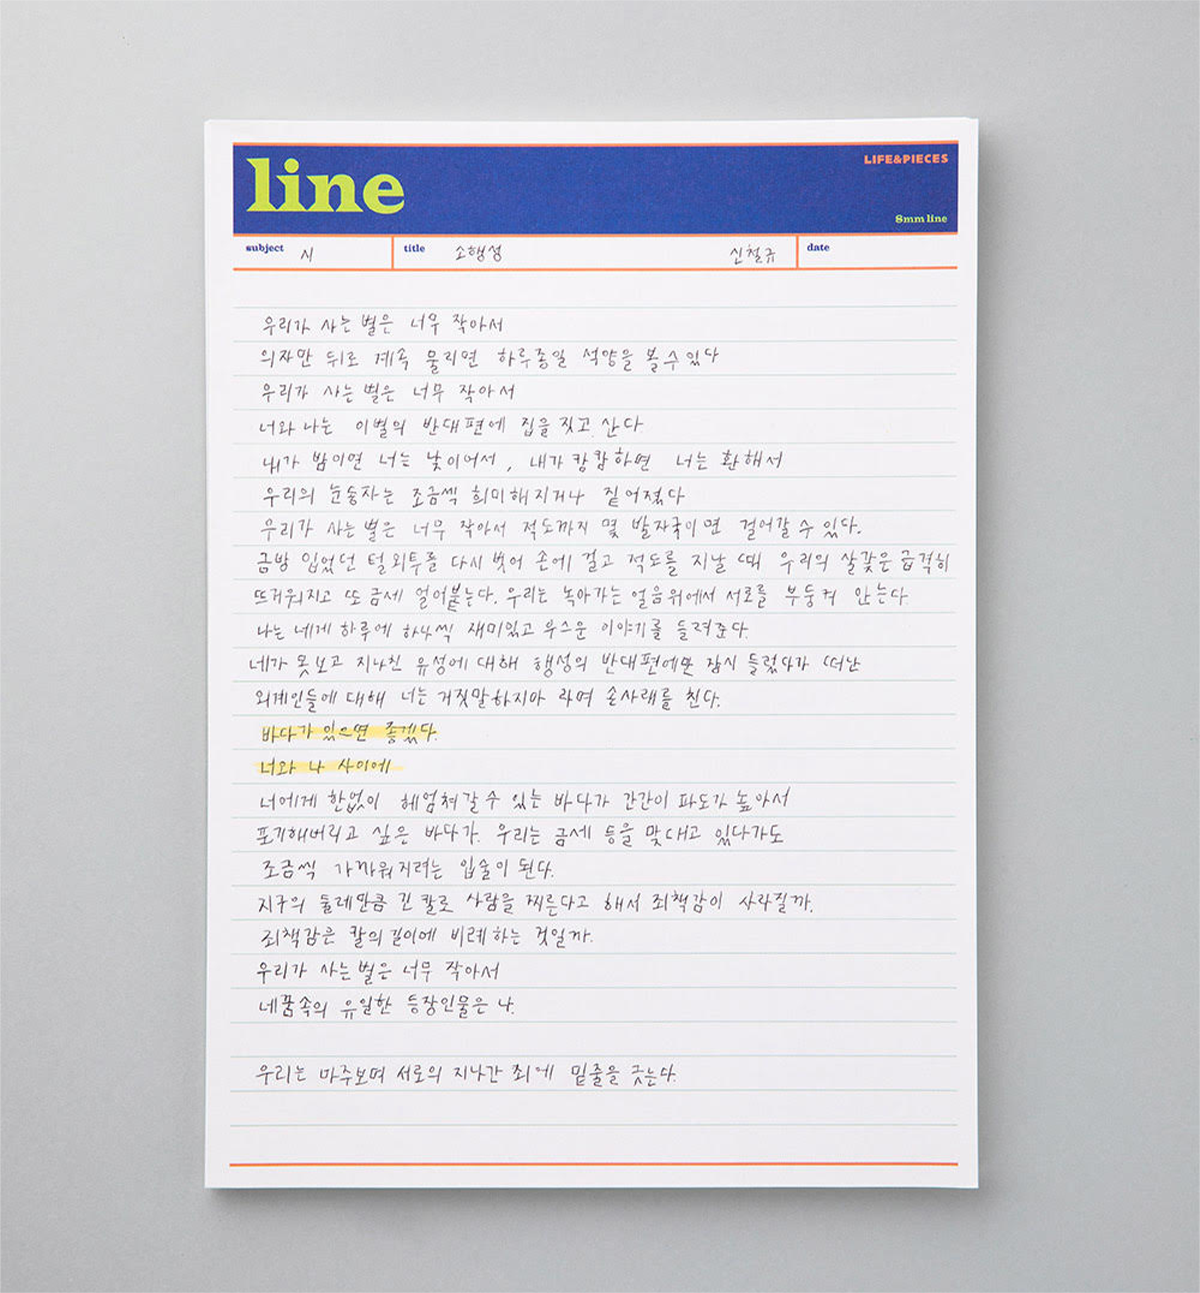 line
LIFE&PIECES
8mm line
subject 시 title 소행성 신철규 date
우리가 사는 별은 너무 작아서
의자만 뒤로 계속 물리면 하루종일 석양을 볼 수 있다
우리가 사는 별은 너무 작아서
너와 나는 이별의 반대편에 집을 짓고 산다
내가 밤이면 너는 낮이어서, 내가 캄캄하면 너는 환해서
우리의 눈동자는 조금씩 희미해지거나 짙어졌다
우리가 사는 별은 너무 작아서 적도까지 몇 발자국이면 걸어갈 수 있다.
금방 입었던 털외투를 다시 벗어 손에 걸고 적도를 지날 때 우리의 살갗은 급격히
뜨거워지고 또 금세 얼어붙는다. 우리는 녹아가는 얼음위에서 서로를 부둥켜 안는다
나는 네게 하루에 하나씩 재미있고 우스운 이야기를 들려준다.
네가 못보고 지나친 유성에 대해 행성의 반대편에만 잠시 들렀다가 떠난
외계인들에 대해 너는 거짓말하지마 라며 손사래를 친다.
바다가 있으면 좋겠다.
너와 나 사이에
너에게 한없이 헤엄쳐갈 수 있는 바다가 간간이 파도가 높아서
포기해버리고 싶은 바다가. 우리는 금세 등을 맞대고 있다가도
조금씩 가까워지려는 입술이 된다.
지구의 둘레만큼 긴 칼로 사람을 찌른다고 해서 죄책감이 사라질까.
죄책감은 칼의 길이에 비례하는 것일까.
우리가 사는 별은 너무 작아서
네 꿈속의 유일한 등장인물은 나.
우리는 마주보며 서로의 지나간 죄에 밑줄을 긋는다.